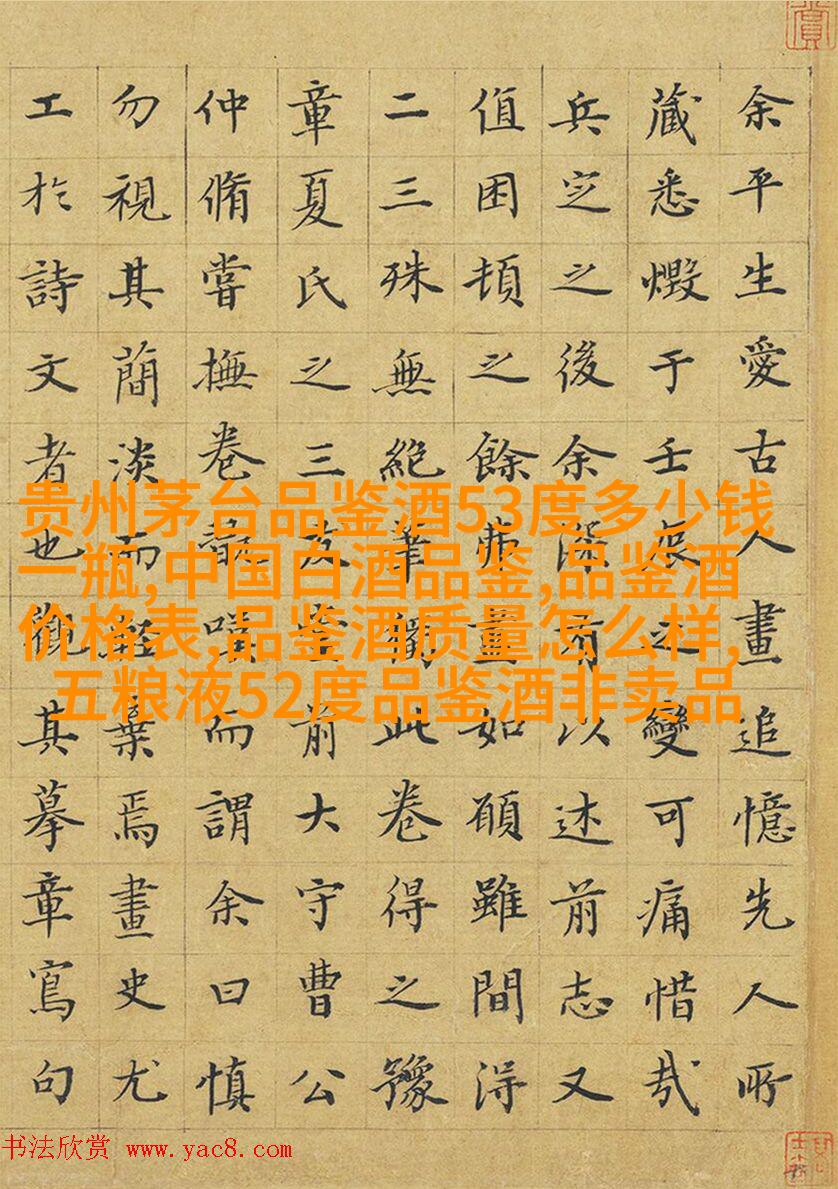 余平生愛古人畫追憶先人所
藏悉燬于壬辰之變可痛惜哉
兵定之後余深有以述前志又
值困頓之餘弗畫如願雖間得
二三殊無絕筆獨此卷得之豫
章夏氏之三友堂前大守曹公
仲脩嘗撫卷嘆而謂余曰慎
勿視其簡淡而輕棄焉畫史尤
工於詩文者也觀其摹章寫句
贵州茅台品鉴酒53度多少钱
一瓶,中国白酒品鉴,品鉴酒
价格表,品鉴酒质量怎么样,
五粮液52度品鉴酒非卖品
书法欣赏 www.yac8.com